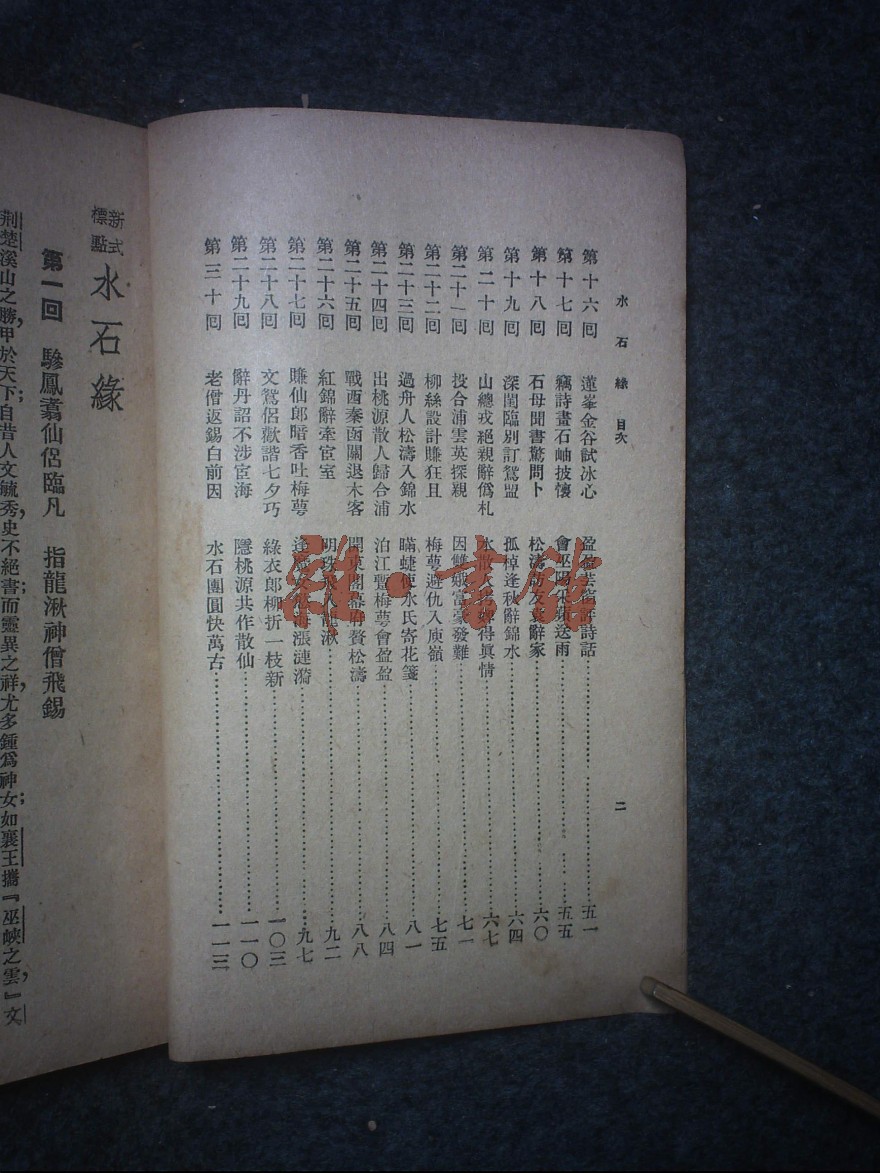 水石緣 目次
二
第十六回 蓮峯金谷試冰心 盈盈芸窗評詩話 五一
第十七回 竊詩畫石岫披懷 會巫陽采蘋送雨 五五
第十八回 石母聞書驚問卜 松濤訪友哀辭家 六〇
第十九回 深閨臨別訂鴛盟 孤棹逢秋辭錦水 六四
第二十回 山總戎絕親辭偽札 水散人 得真情 六七
第二十一回 投合浦雲英探親 因雙娥富豪發難 七一
第二十二回 柳絲設計賺狂且 梅萼避仇入庾嶺 七五
第二十三回 過舟人松濤入錦水 瞞婕使水氏寄花箋 八一
第二十四回 出桃源散人歸合浦 泊江豐梅萼會盈盈 八四
第二十五回 戰酉秦函關退木客 開東閣幕府贅松濤 八八
第二十六回 紅錦辭牽宦室 明珠飛入龍湫 九二
第二十七回 賺仙郎暗香吐梅萼 逢 女 海漲漣漪 九七
第二十八回 文鴛侶歡諧七夕巧 綠衣郎柳折一枝新 一〇三
第二十九回 辭丹詔不涉宦海 隱桃源共作散仙 一一〇
第三十回 老僧返錫白前因 水石團圓快萬古 一一三
雜·書館
新式標點 水石緣
第一回 驂鳳翥仙侶臨凡 指龍湫神僧飛錫
荆楚溪山之勝，甲於天下；自昔人文毓秀，史不絕書；而靈異之祥，尤多鍾為神女；如襄王攜『巫峽之雲，』文